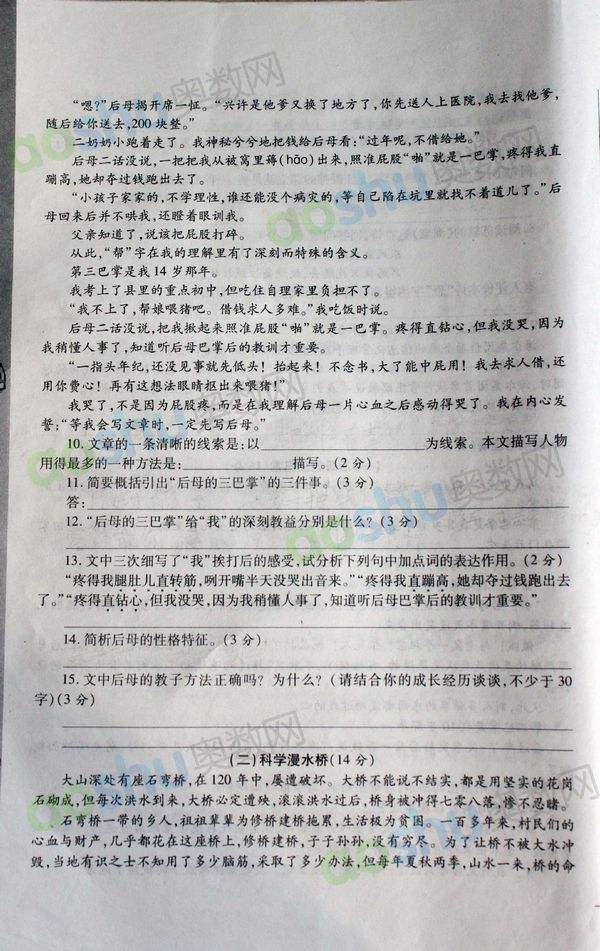 “嗯?”后母揭开席一怔。“兴许是他爹又换了地方了,你先送人上医院,我去找他爹,
随后给你送去,200块整。”
二奶奶小跑着走了。我神秘兮兮地把钱给后母看:“过年呢,不借给她。”
后母二话没说,一把把我从被窝里薅(hāo)出来,照准屁股“啪”就是一巴掌,疼得我直
蹦高,她却夺过钱跑出去了。
“小孩子家家的,不学理性,谁还能没个病灾的,等自己陷在坑里就找不着道儿了。”后
母回来后并不哄我,还瞪着眼训我。
父亲知道了,说该把屁股打碎。
从此,“帮”字在我的理解里有了深刻而特殊的含义。
第三巴掌是我14岁那年。
我考上了县里的重点初中,但吃住自理家里负担不了。
“我不上了,帮娘喂猪吧。借钱求人多难。”我吃饭时说。
后母二话没说,把我掀起来照准屁股“啪”就是一巴掌。疼得直钻心,但我没哭,因为
我稍懂人事了,知道听后母巴掌后的教训才重要。
“一指头年纪,还没见事就先低头!抬起来!不念书,大了能中屁用!我去求人借,还
用你费心!再有这想法眼睛抠出来喂猪!”
我哭了,不是因为屁股疼,而是在我理解后母一片心血之后感动得哭了。我在内心发
誓:“等我会写文章时,一定先写后母。”
10.文章的一条清晰的线索是:以____________为线索。本文描写人物
用得最多的一种方法是:____________描写。(2分)
11.简要概括引出“后母的三巴掌”的三件事。(3分)
答:____________
12.“后母的三巴掌”给“我”的深刻教益分别是什么?(3分)
13.文中三次细写了“我”挨打后的感受,试分析下列句中加点词的表达作用。(2分)
“疼得我腿肚儿直转筋,咧开嘴半天没哭出音来。”“疼得我直蹦高,她却夺过钱跑出去
了。”“疼得直钻心,但我没哭,因为我稍懂人事了,知道听后母巴掌后的教训才重要。”
14.简析后母的性格特征。(3分)
15.文中后母的教子方法正确吗?为什么?(请结合你的成长经历谈谈,不少于30
字)(3分)
(二)科学漫水桥(14分)
大山深处有座石弯桥,在120年中,屡遭破坏。大桥不能说不结实,都是用坚实的花岗
石砌成,但每次洪水到来,大桥必定遭殃,滚滚洪水过后,桥身被冲得七零八落,惨不忍睹。
石弯桥一带的乡人,祖祖辈辈为修桥建桥拖累,生活极为贫困。一百多年来,村民们的
心血与财产,几乎都花在这座桥上,修桥建桥,子子孙孙,没有穷尽。为了让桥不被大水冲
毁,当地有识之士不知用了多少脑筋,采取了多少办法,但每年夏秋两季,山水一来,桥的命
aoshu奥数网
aoshu奥数网
aoshu奥数网
aoshu奥数网